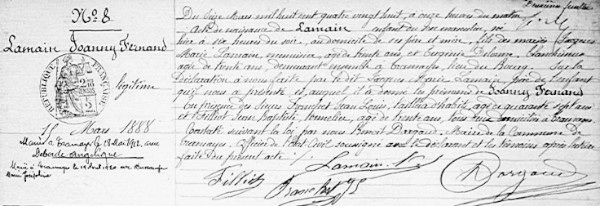 N° 8.
Lamain Joanny Fernand
RÉPUBLIQUE FRANÇAISE
légitime
15 Mars 1888
Marié à Tramayes le 18 Mai 1912, avec
Debarde Angélique
Marié à Tramayes le
Du Mars mil huit cent quatre vingt huit, à onze heures du matin
Acte de naissance de Lamain enfant du sexe masculin, né
hier à six heures du soir, au domicile de ses père et mère, fils des mariés Jacques
Marie Lamain menuisier, âgé de trente ans et
âgée de trente ans, demeurant ensemble à Tramayes, lieu du Bourg. Sur la
déclaration à nous faite par le dit Jacques Marie Lamain père de l'enfant
qu'il nous a présenté et auquel il a donné les prénoms de Joanny Fernand
En présence des Sieurs Franchet Jean Louis, âgé de quarante sept ans
et Jean Baptiste, âgé de trente ans, tous deux domiciliés à Tramayes.
Constaté suivant la loi par nous Benoit Dargaud, Maire de la Commune de
Tramayes, Officier de l'Etat Civil soussigné avec le déclarant et les témoins après lecture
faite du présent acte.
Lamain
Dargaud